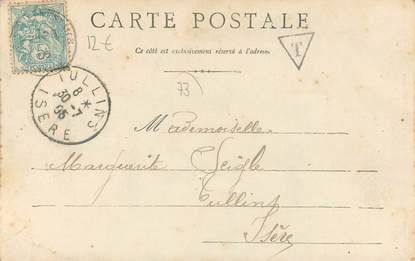 CARTE POSTALE
Ce côté est exclusivement réservé à l'adresse.
12-€
T
TULLINS
8 *
30 -7
05
ISERE
73
Mademoiselle
Marguerite Seigle
Tullins
Isère